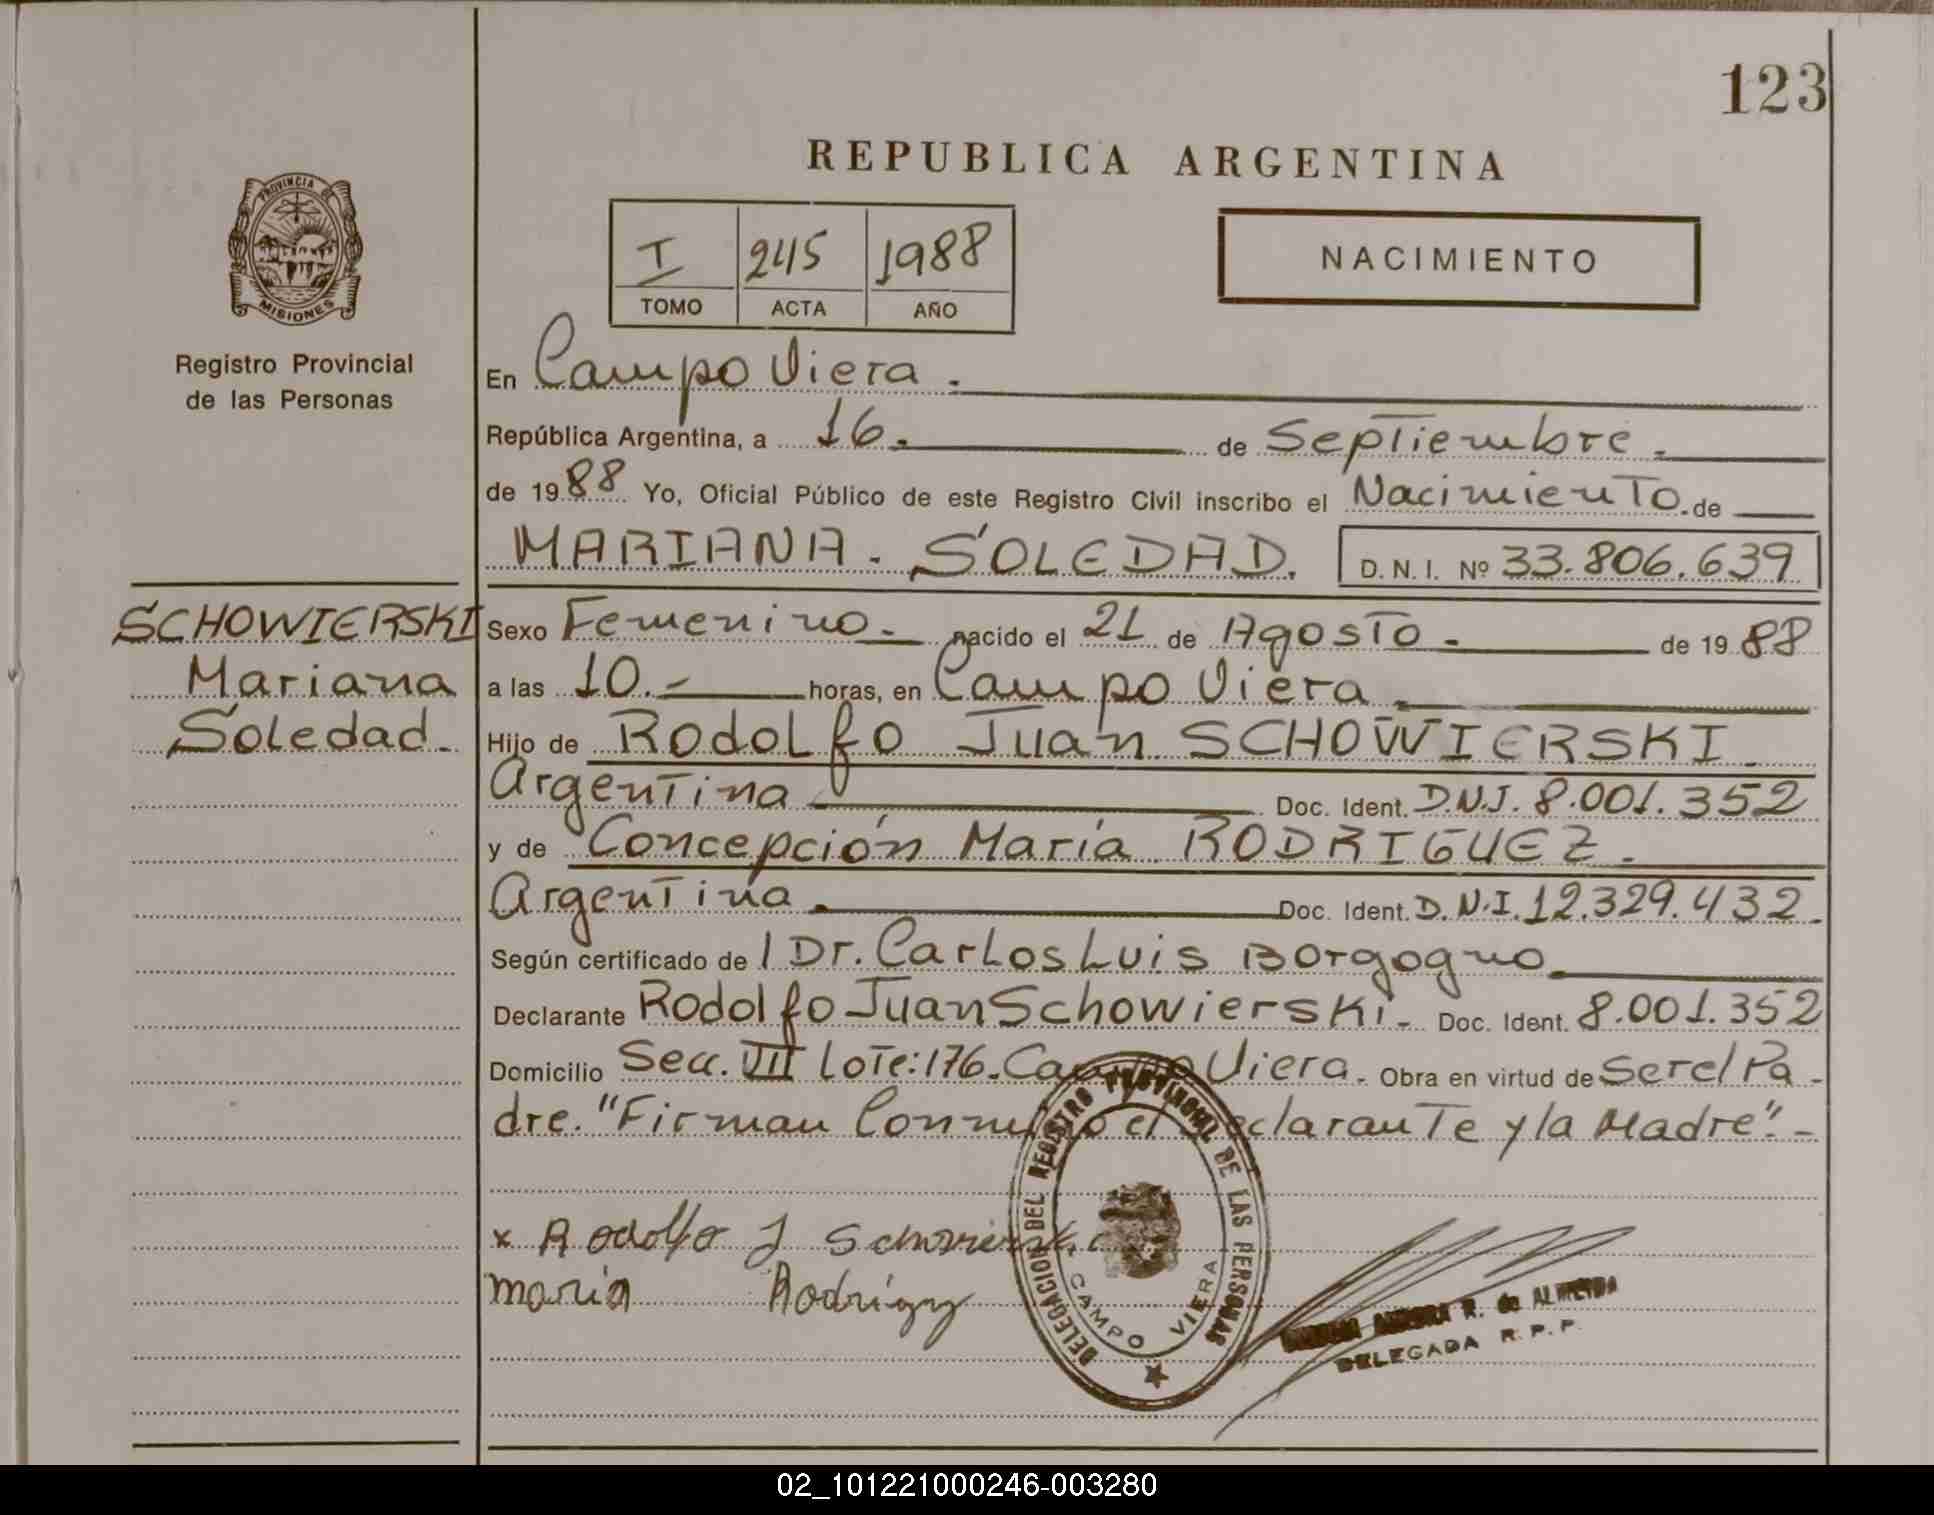 123
REPUBLICA ARGENTINA
PROVINCIA DE
MISIONES
Registro Provincial
de las Personas
I 245 1988
TOMO ACTA AÑO
NACIMIENTO
En Campo Viera.
República Argentina, a 16. de Septiembre.
de 1988 Yo, Oficial Público de este Registro Civil inscribo el Nacimiento de
MARIANA. SOLEDAD. D. N. I. Nº 33.806.639
SCHOWIERSKI
Mariana
Soledad.
Sexo Femenino. nacido el 21 de Agosto. de 1988
a las 10.- horas, en Campo Viera.
Hijo de Rodolfo Juan SCHOWIERSKI.
Argentina Doc. Ident. D.N.I. 8.001.352
y de Concepción María RODRIGUEZ.
Argentina. Doc. Ident. D.N.I. 12.329.432.
Según certificado de l Dr. Carlos Luis Borgogno
Declarante Rodolfo Juan Schowierski. Doc. Ident. 8.001.352
Domicilio Secc. VII Lote: 176. Campo Viera. Obra en virtud de Ser el Pa-
dre. "Firman Conmigo el Declarante y la Madre".-
x Rodolfo J Schowierski
maria Rodrigz
DELEGACION DEL REGISTRO PROVINCIAL DE LAS PERSONAS
CAMPO VIERA
AURORA R. de ALMEIDA
DELEGADA R. P. P.
02_101221000246-003280